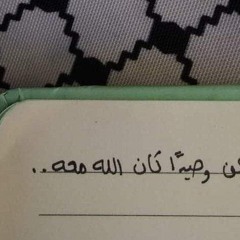 وحيدًا كان الله معه..